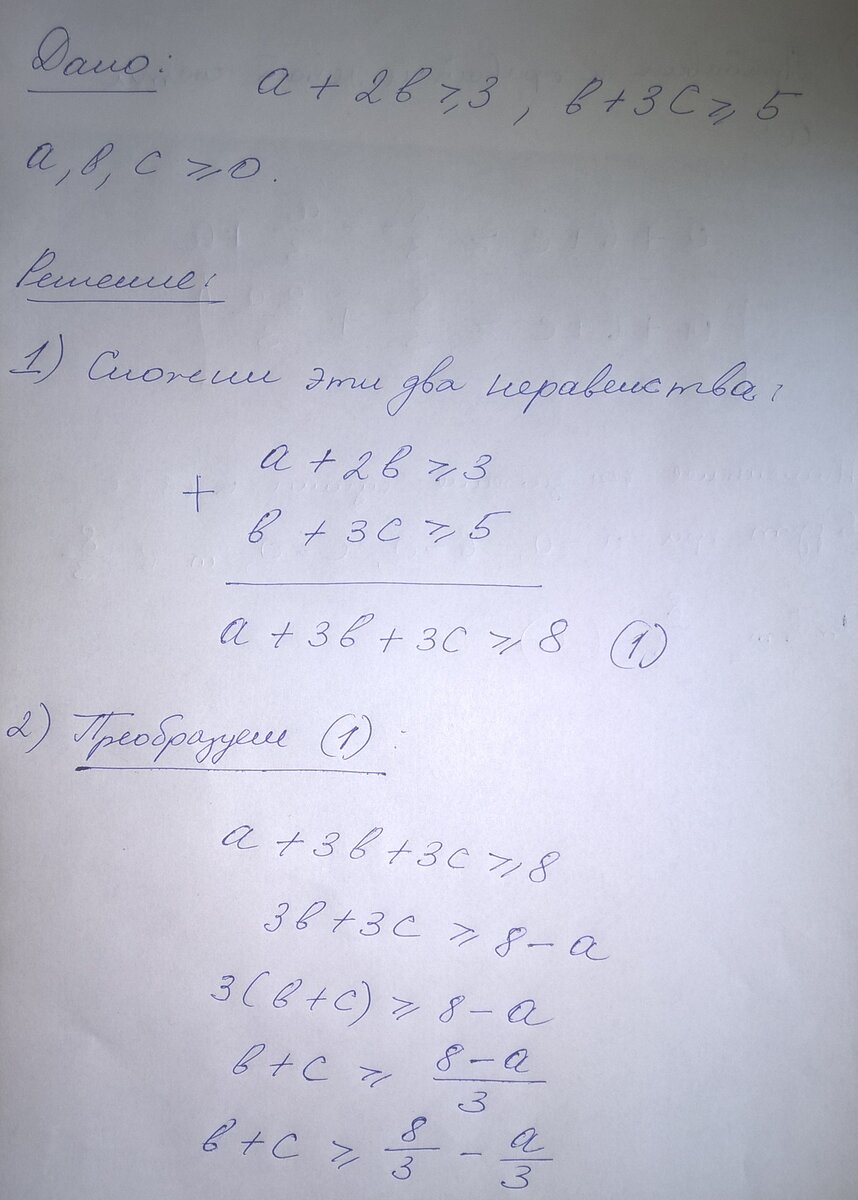 Дано: a + 2b ⩾ 3, b + 3c ⩾ 5
a, b, c ⩾ 0.
Решение:
1) Сложим эти два неравенства:
a + 2b ⩾ 3
+
b + 3c ⩾ 5
a + 3b + 3c ⩾ 8 (1)
2) Преобразуем (1):
a + 3b + 3c ⩾ 8
3b + 3c ⩾ 8 - a
3(b + c) ⩾ 8 - a
b + c ⩾ (8 - a)/3
b + c ⩾ 8/3 - a/3